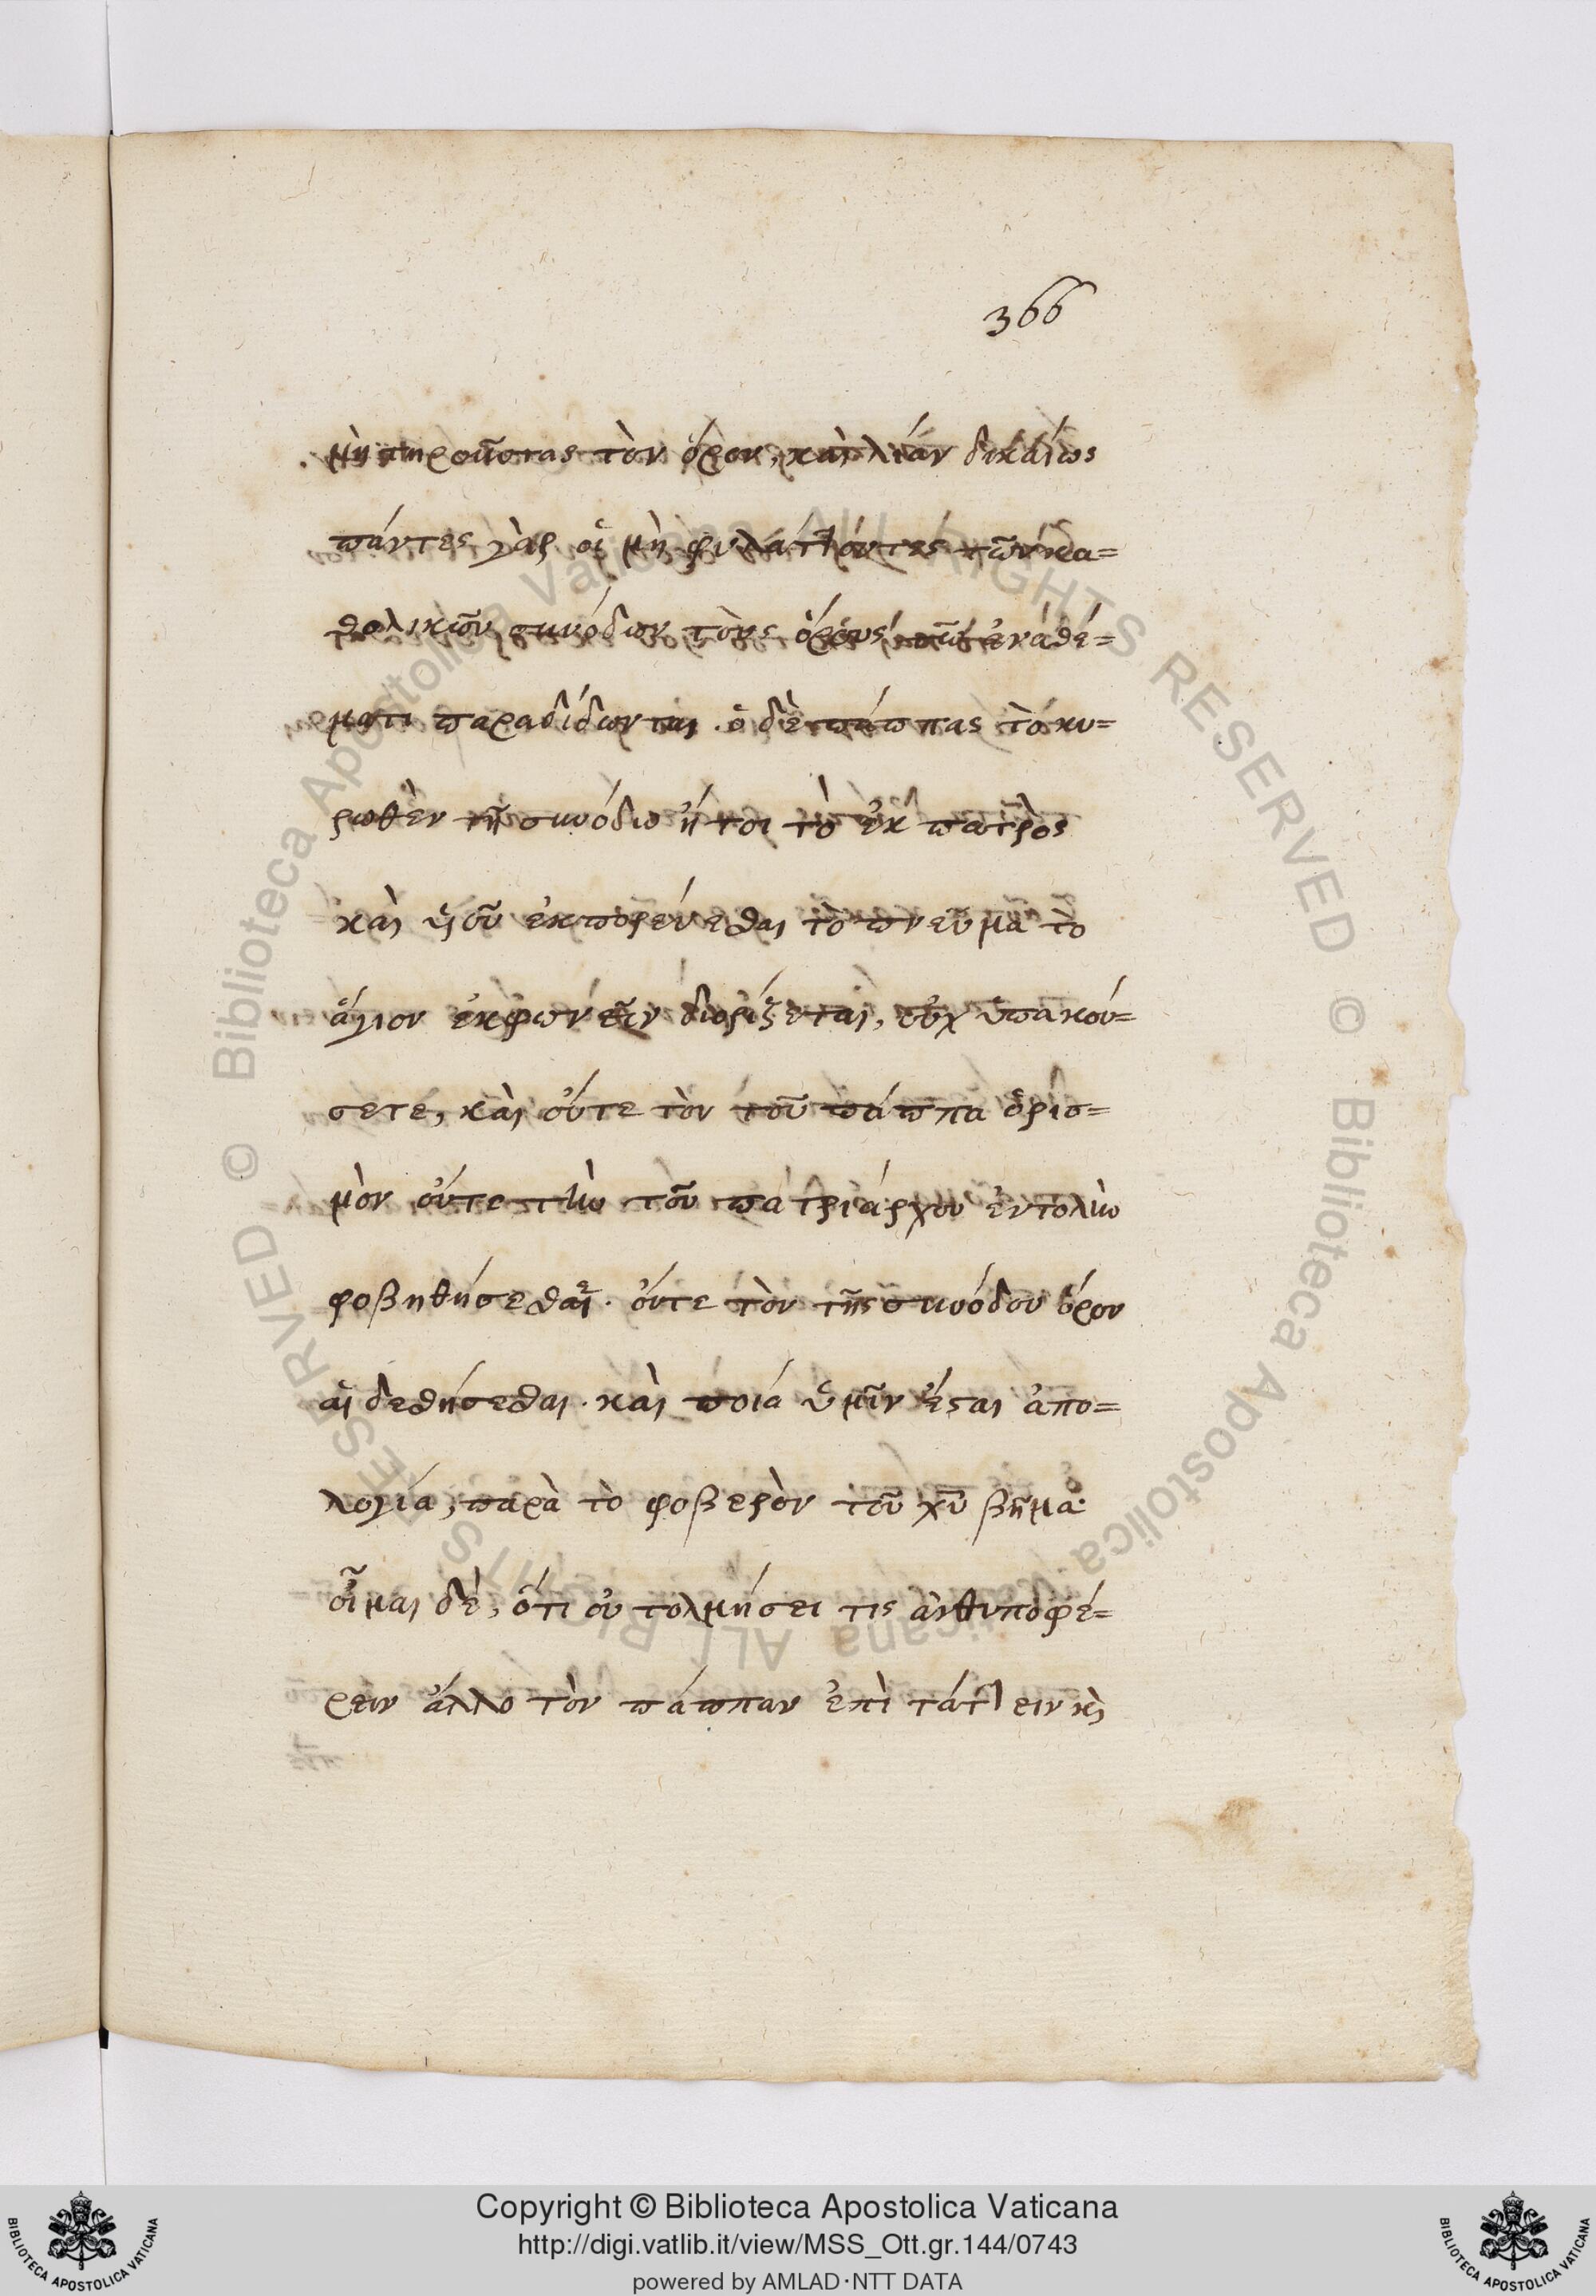 366
μὴ τηροῦντας τὸν ὅρον, καὶ λίαν δικαίως
πάντες γὰρ οἱ μὴ φυλάττοντες τῶν κα=
θολικῶν συνόδων τοὺς ὅρους, τῶ ἀναθέ=
ματι παραδίδωνται. ὁ δὲ πάππας τὸ κυ=
ρωθὲν τῆ συνόδω ἤτοι τὸ ἐκ πατρὸς
καὶ ὑοῦ ἐκπορεύεσθαι τὸ πνεῦμα τὸ
ἅγιον ἐκφωνεῖν διορίζεται, οὐχ ὑπακού=
σετε, καὶ οὔτε τὸν τοῦ πάππα ὁρισ=
μὸν οὔτε τὴν τοῦ πατριάρχου ἐντολὴν
φοβηθήσεσθαι. οὔτε τὸν τῆς συνόδου ὅρον
αἰδεσθήσεσθαι. καὶ ποία ὑμῖν ἔσται ἀπο=
λογία, παρὰ τὸ φοβερὸν τοῦ χῦ βῆμα·
οἶμαι δὲ, ὅτι οὐ τολμήσει τις ἀνθυποφέ=
ρειν ἄλλο τὸν πάππαν ἐπιτάττειν κὶ
Copyright © Biblioteca Apostolica Vaticana
http://digi.vatlib.it/view/MSS_Ott.gr.144/0743
powered by AMLAD·NTT DATA
BIBLIOTECA APOSTOLICA VATICANA
BIBLIOTECA APOSTOLICA VATICANA
© Biblioteca Apostolica Vaticana ALL RIGHTS RESERVED
© Biblioteca Apostolica Vaticana ALL RIGHTS RESERVED